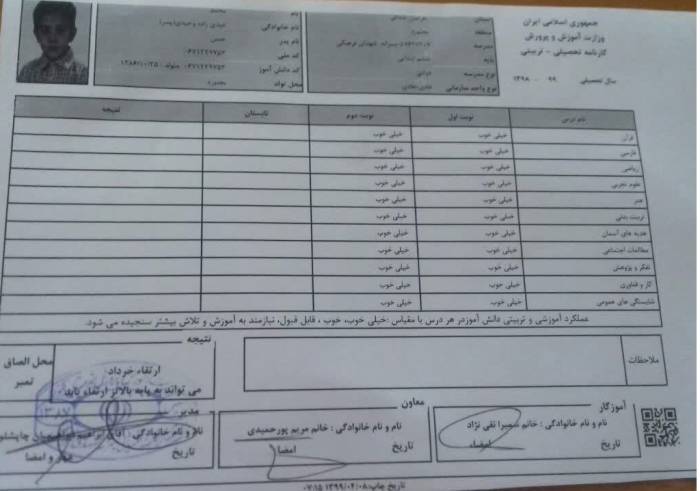 جمهوری اسلامی ایران
وزارت آموزش و پرورش
کارنامه تحصیلی - تربیتی
سال تحصیلی ۹۹ - ۱۳۹۸
نام
نام خانوادگی
نام پدر
کد ملی
کد دانش آموز
محل تولد
استان
منطقه
مدرسه
پایه
نوع مدرسه
نوع واحد سازمانی
نام درس نوبت اول نوبت دوم تابستان نتیجه
قرآن خیلی خوب خیلی خوب
فارسی خیلی خوب خیلی خوب
ریاضی خیلی خوب خیلی خوب
علوم تجربی خیلی خوب خیلی خوب
هنر خیلی خوب خیلی خوب
تربیت بدنی خیلی خوب خیلی خوب
هدیه های آسمان خیلی خوب خیلی خوب
مطالعات اجتماعی خیلی خوب خیلی خوب
تفکر و پژوهش خیلی خوب خیلی خوب
کار و فناوری خیلی خوب خیلی خوب
شایستگی های عمومی خیلی خوب خیلی خوب
عملکرد آموزشی و تربیتی دانش آموزدر هر درس با مقیاس :خیلی خوب، خوب ، قابل قبول، نیازمند به آموزش و تلاش بیشتر سنجیده می شود.
ملاحظات
نتیجه
ارتقاء خرداد
می تواند به پایه بالاتر ارتقاء یابد.
محل الصاق
تمبر
آموزگار
نام و نام خانوادگی : خانم سمیرا تقی نژاد
تاریخ امضاء
معاون
نام و نام خانوادگی : خانم مریم پورحمیدی
تاریخ امضا
مدیر
نام و نام خانوادگی : آقای ابراهیم
تاریخ مهر و امضا
تاریخ چاپ:۱۳۹۹/۰۴/۰۸ ۰۷:۱۵